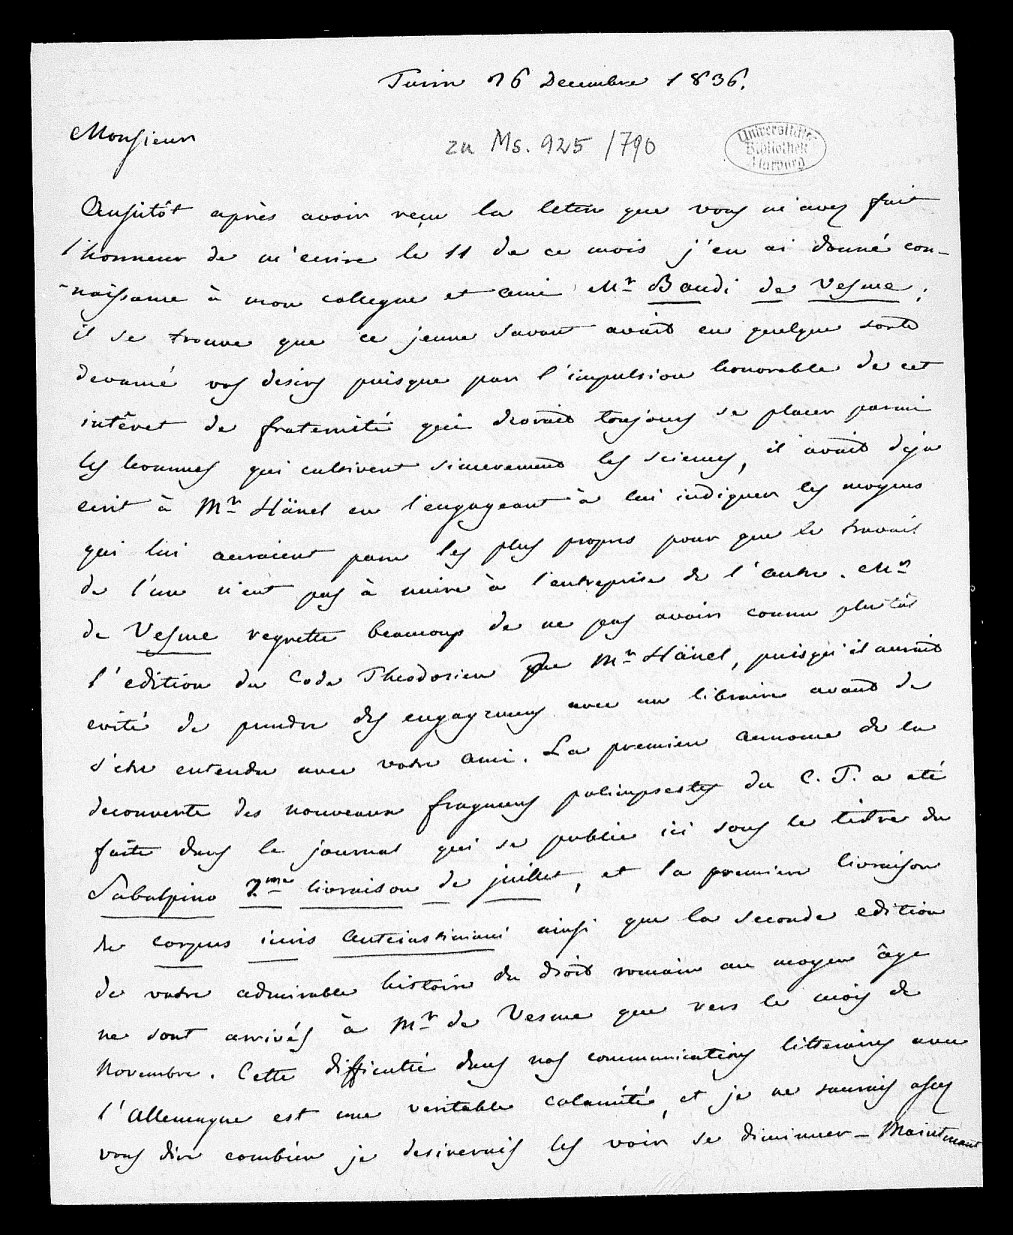 Turin 26 Decembre 1836.
Monsieur
zu Ms. 925/790
Universitäts-
Bibliothek
Marburg
Aussitôt après avoir reçu la lettre que vous m'avez fait
l'honneur de m'ecrire le 11 de ce mois j'en ai donné con-
naissance à mon collegue et ami Mr Baudi de Vesme;
il se trouve que ce jeune savant avait en quelque sorte
devancé vos desirs puisque par l'impulsion honorable de cet
intêret de fraternité qui devrait toujours se placer parmi
les hommes qui cultivent sincerement les sciences, il avait déja
ecrit à Mr Hänel en l'engageant à lui indiquer les moyens
qui lui auraient paru les plus propres pour que le travail
de l'un n'eut pas à nuire à l'entreprise de l'autre. Mr
de Vesme regrette beaucoup de ne pas avoir connu plutôt
l'edition du Code Theodosien de Mr Hänel, puisqu'il aurait
evité de prendre des engagemens avec un libraire avant de
s'etre entendu avec votre ami. La premiere annonce de la
decouverte des nouveaux fragmens palimpsestes du C. T. a eté
faite dans le journal qui se publie ici sous le titre du
Subalpino 2me livraison de juillet, et la premiere livraison
du corpus iuris anteiustiniani ainsi que la seconde edition
de votre admirable histoire du droit romain au moyen âge
ne sont arrivés à Mr de Vesme que vers le mois de
Novembre. Cette difficulté dans nos communications litteraires avec
l'Allemagne est une veritable calamité, et je ne saurais assez
vous dire combien je desirerais les voir se diminuer - Maintenant